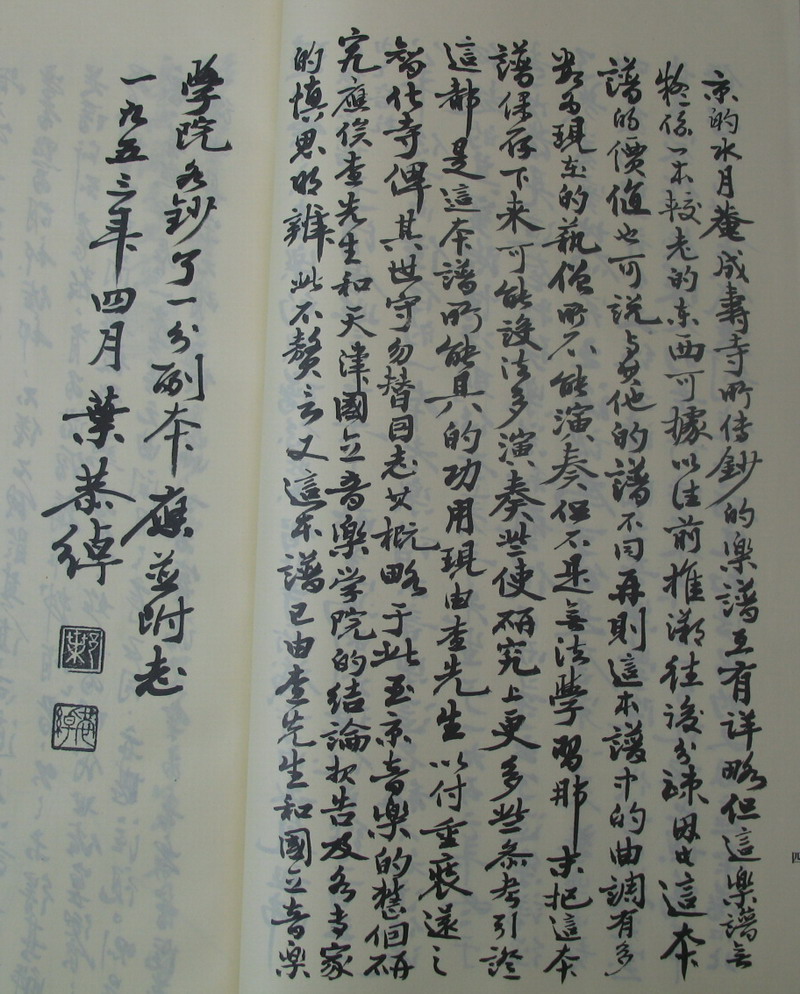 京的水月菴成壽寺所傳鈔的樂譜互有詳略但這樂譜無
疑係一本較老的东西可據以往前推溯往後分疎因此这本
譜的價值也可說与其他的譜不同再則這本譜中的曲調有多
數為現在的藝僧所不能演奏但不是無法學習那末把這本
譜保存下来可能設法多演奏些使研究上更多些参考引證
這都是這本譜所能具的功用現由查先生以付重裝送之
智化寺俾其世守勿替因志其概略于此至京音樂的整個研
究應俟查先生和天津國立音樂学院的结論報告及各专家
的慎思明辨此不贅言又這本譜已由查先生和國立音樂
學院各鈔了一分副本應並附志
一九五三年四月葉恭綽